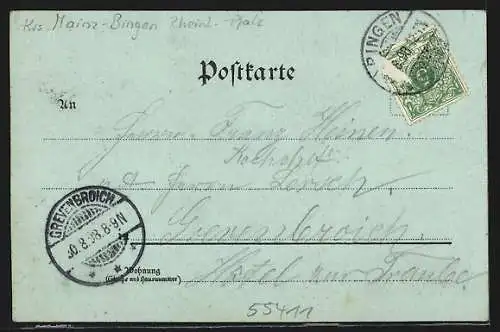 Krs. Mainz-Bingen Rheinl.-Pfalz
BINGEN
Postkarte
An
Herrn Franz Hinen
Herrn
Grevenbroich
GREVENBROICH
30.8.98.8-9N
Hotel zur Traube
Wohnung
(Straße und Hausnummer)
55411